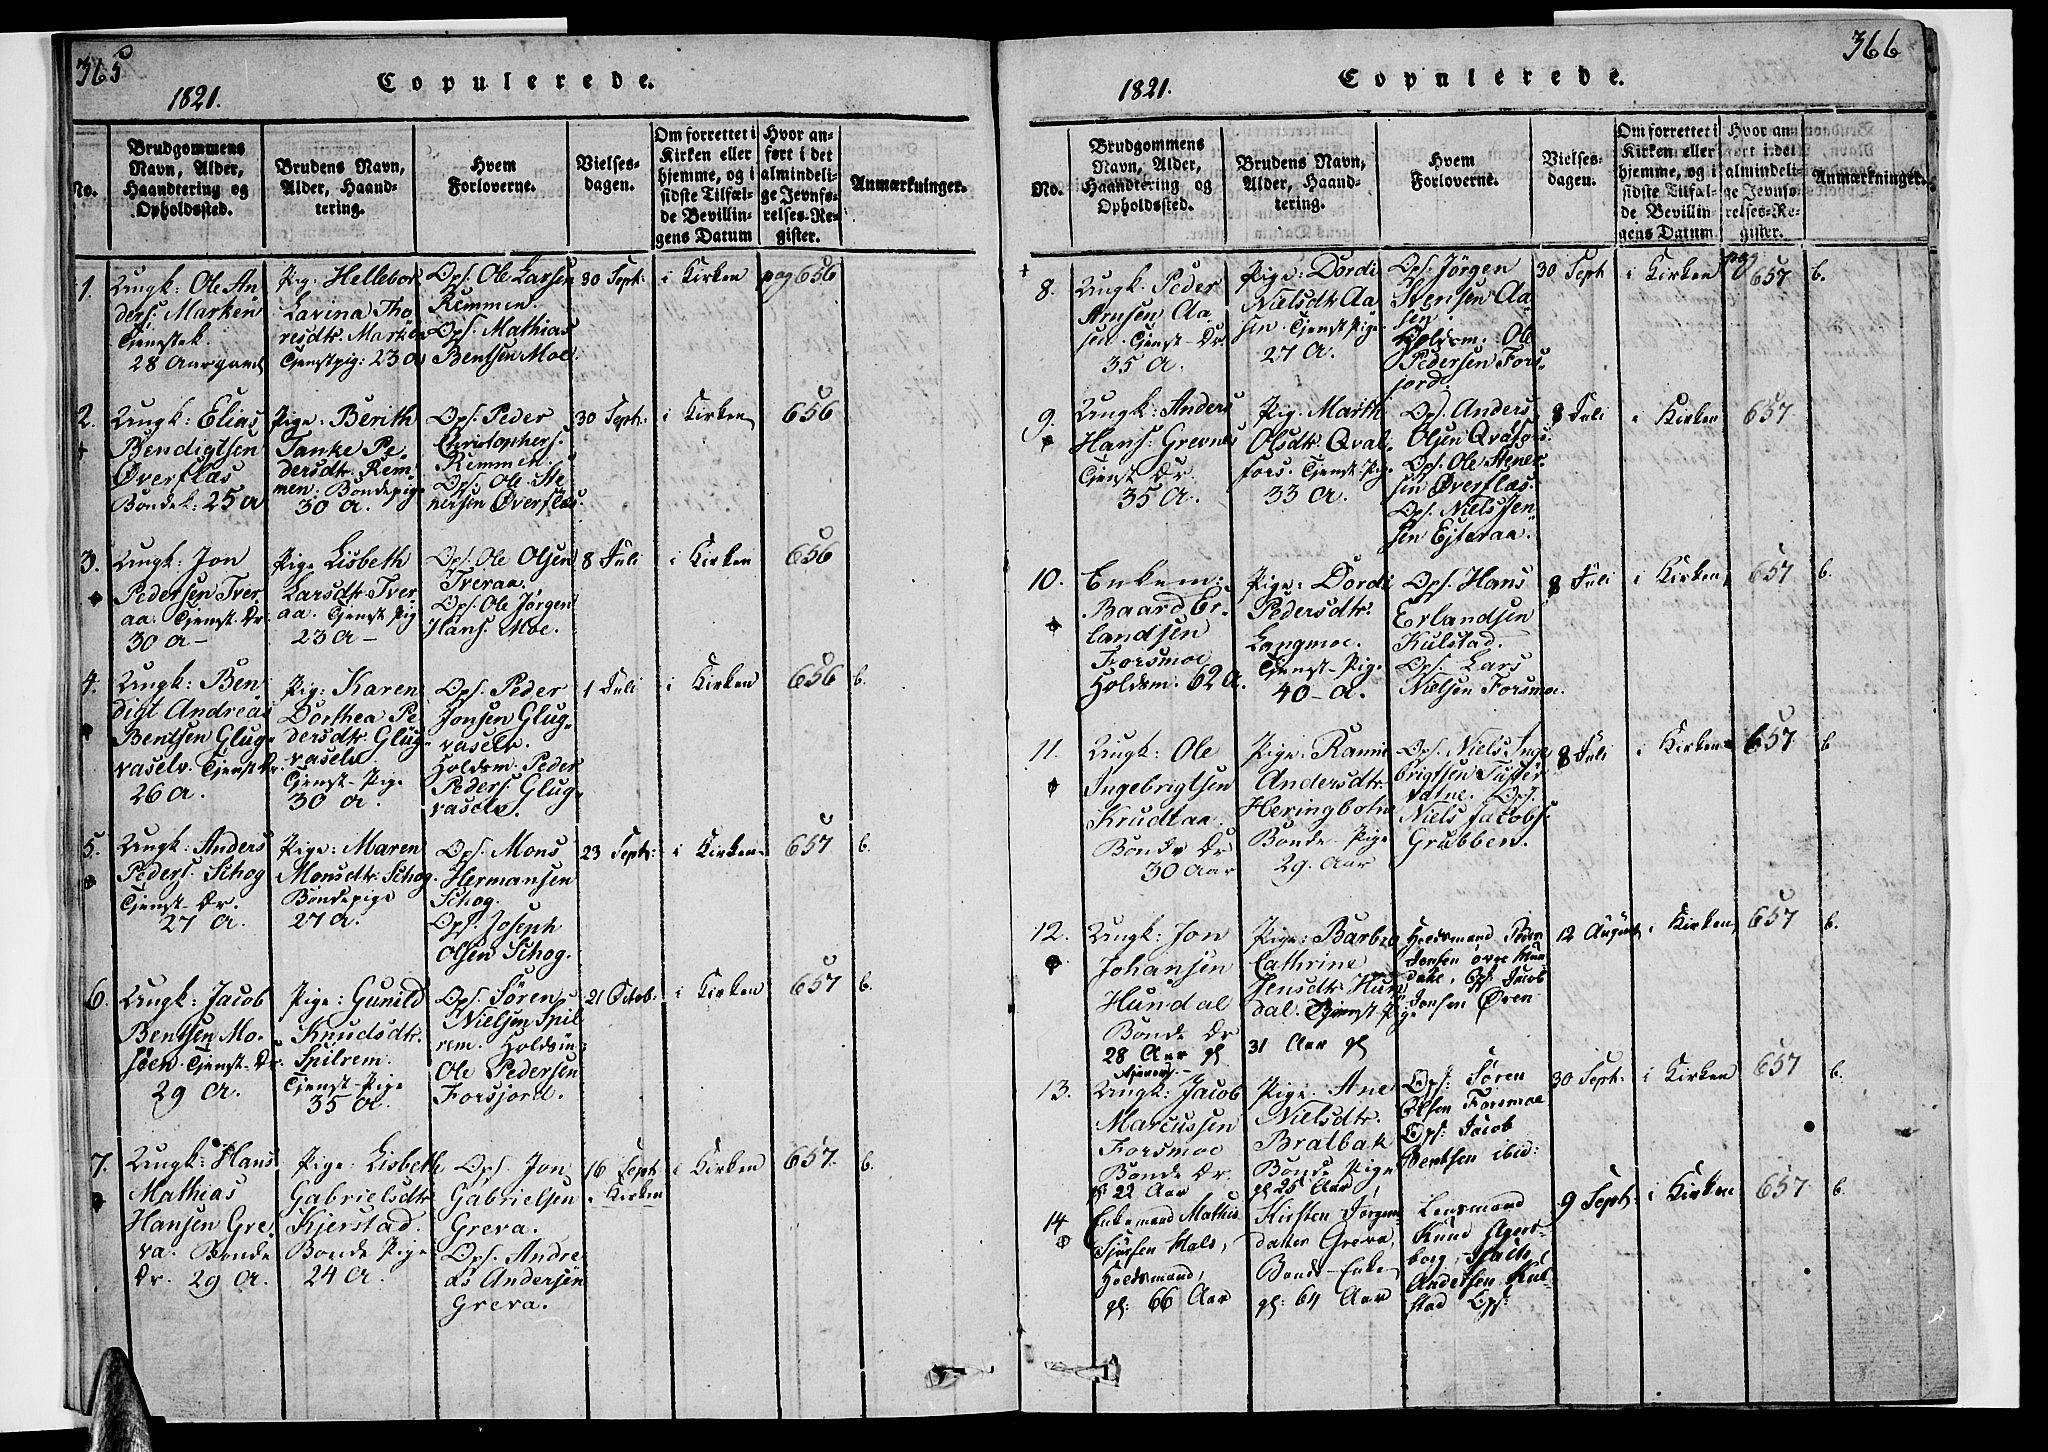 365
1821.
Copulerede.
No.
Brudgommens
Navn, Alder,
Haandtering og
Opholdssted.
Brudens Navn,
Alder, Haand-
tering.
Hvem
Forloverne.
Vielses-
dagen.
Om forrettet i
Kirken eller
hjemme, og i
sidste Tilfæl-
de Bevillin-
gens Datum
Hvor an-
ført i det
almindeli-
ge Jevnfø-
relses-Re-
gister.
Anmærkninger.
1.
Ungk: Ole An
ders: Marken
Tjenestek.
28 Aar gaml
Pig: Hellebor
Lavina Tho
resdtr. Marken
Tjenstpig: 23 A
Ops. Ole Larsen
Remmen.
Ops. Mathias
Bentsen Moe.
30 Sept:
i Kirken
pag 656
2.
Ungk: Elias
Bendigtsen
Øverflas
Bondek: 25 A
Pige: Berith
Tanke Pe-
dersdtr. Rem-
men: Bondepige
30 A.
Ops. Peder
Christophers:
Remmen.
Ops. Ole Ste-
nersen Øverflas.
30 Sept:
i Kirken
656
3.
Ungk: Jon
Pedersen Tver
aa. Tjenst. Dr.
30 A –
Pige Lisbeth
Larsdtr. Tver
aa. Tjenst Pig
23 A –
Ops. Ole Olsen
Tveraa.
Ops. Ole Jørgen
Hans: Moe.
8 Juli
i Kirken
656
4.
Ungk: Ben
digt Andreas
Bentsen Glug-
vaselv. Tjenst Dr.
26 A.
Pig: Karen
Dorthea Pe
dersdtr. Glug-
vaselv.
Tjenst-Pige
30 A.
Ops. Peder
Jonsen Glug-
vaselv.
Holdsm. Peder
Peders: Glug-
vaselv.
1 Juli
i Kirken
656
b.
5.
Ungk: Anders
Peders: Schog
Tjenst-Dr.
27 A.
Pige: Maren
Monsdtr. Schog.
Bondepige
27 A.
Ops. Mons
Hermansen
Schog.
Ops. Joseph
Olsen Schog.
23 Sept:
i Kirken
657
b.
6.
Ungk: Jacob
Bentsen Mo-
søen Tjenst-Dr.
29 A.
Pige: Gunild
Knudsdtr.
Spilrem.
Tjenst-Pige
35 A.
Ops. Søren
Nielsen Spil
rem. Holdsm:
Ole Pedersen
Forsjord.
21 Octob.
i Kirken
657
b.
7.
Ungk: Hans
Mathias
Hansen Gre-
va. Bonde
Dr. 29 A.
Pige: Lisbeth
Gabrielsdtr
Kjerstad.
Bonde Pige
24 A.
Ops. Jon
Gabrielsen
Greva.
Ops. Andre-
as Andersen
Greva.
16 Sept
i Kirken
i Kirken
657.
b.
366
1821.
Copulerede.
No.
Brudgommens
Navn, Alder,
Haandtering og
Opholdssted.
Brudens Navn,
Alder, Haand-
tering.
Hvem
Forloverne.
Vielses-
dagen.
Om forrettet i
Kirken eller
hjemme, og i
sidste Tilfæl-
de Bevillin-
gens Datum.
Hvor an-
ført i det
almindeli-
ge Jevnfø-
relses-Re-
gister.
Anmærkninger.
8.
Ungk. Peder
Arnsen Aa-
sen. Tjenst-Dr.
35 A.
Pige: Dordi
Nielsdtr Aa
sen. Tjenst Pige
27 A.
Ops. Jørgen
Stensen Aa-
sen.
Holdsm. Ole
Pedersen Fors-
jord.
30 Sept
i Kirken
pag
657
b.
9.
Ungk: Anders
Hans: Grevnes
Tjenst Dr.
35 A.
Pig. Marth
Olsdtr. Qval-
fors. Tjenst Pig
33 A.
Ops. Anders
Olsen Qvalfors.
Ops. Ole Stener-
sen Øverflas.
Ops. Niels Jen-
sen Ejteraa.
8 Juli
i Kirken
657
10.
Enkem:
Baard Er-
landsen
Forsmoe
Holdsm. 62 A.
Pige: Dordi
Pedersdtr:
Langmoe.
Tjenst-Pige
40 – A.
Ops. Hans
Erlandsen
Kulstad.
Ops. Lars
Nielsen Forsmoe.
8 Juli
i Kirken
657
b.
11.
Ungk: Ole
Ingebrigtsen
Krudtaa.
Bonde Dr
30 Aar
Pige: Rannie
Andersdtr.
Heringbotn
Bonde-Pige
29. Aar
Ops. Niels Inge
brigtsen Tuster
vatne. Ops.
Niels Jacobs:
Grubben.
8 Juli
i Kirken
657.
b
12.
Ungk: Jon
Johansen
Hundal
Bonde Dr
28 Aar gl
Pige: Barbro
Cathrine
Jensdtr Hun
dal. Tjenst Pige
31 Aar gl
Holdsmand Peder
Jonsen øvre
Ops. Jacob
Jonsen Øren
12 August
i Kirken
657
b.
13.
Ungk: Jacob
Marcussen
Forsmoe
Bonde Dr.
gl 22 Aar
Pige: Ane
Nielsdtr.
Bratbak
Bonde Pige
gl 25 Aar
Ops: Søren
Olsen Forsmoe
Ops: Jacob
Bentsen ibid:
30 Sept:
i Kirken
657
b.
14
Enkemand Mathis
Sjursen Hals,
Holdsmand,
gl: 66 Aar
Kirsten Jørgens
datter Greva,
Bonde-Enke
gl: 64 Aar
Lensmand
Knud Agers-
borg, Isach
Andersen Kul-
stad Ops:
9 Sept:
i Kirken
657
b.